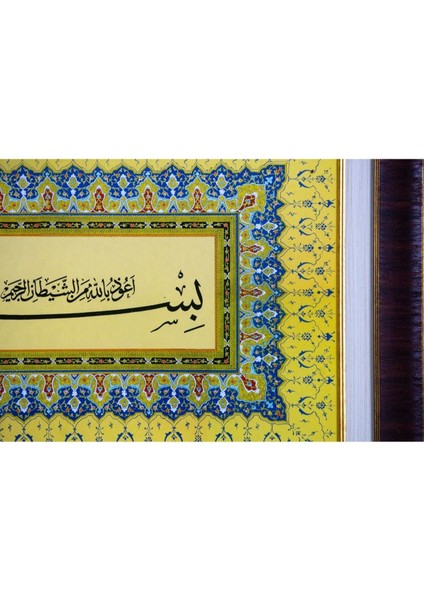 اَعُوذُ بِاللّٰهِ مِنَ الشَّيْطَانِ الرَّجِيمِ
بِسْـــ